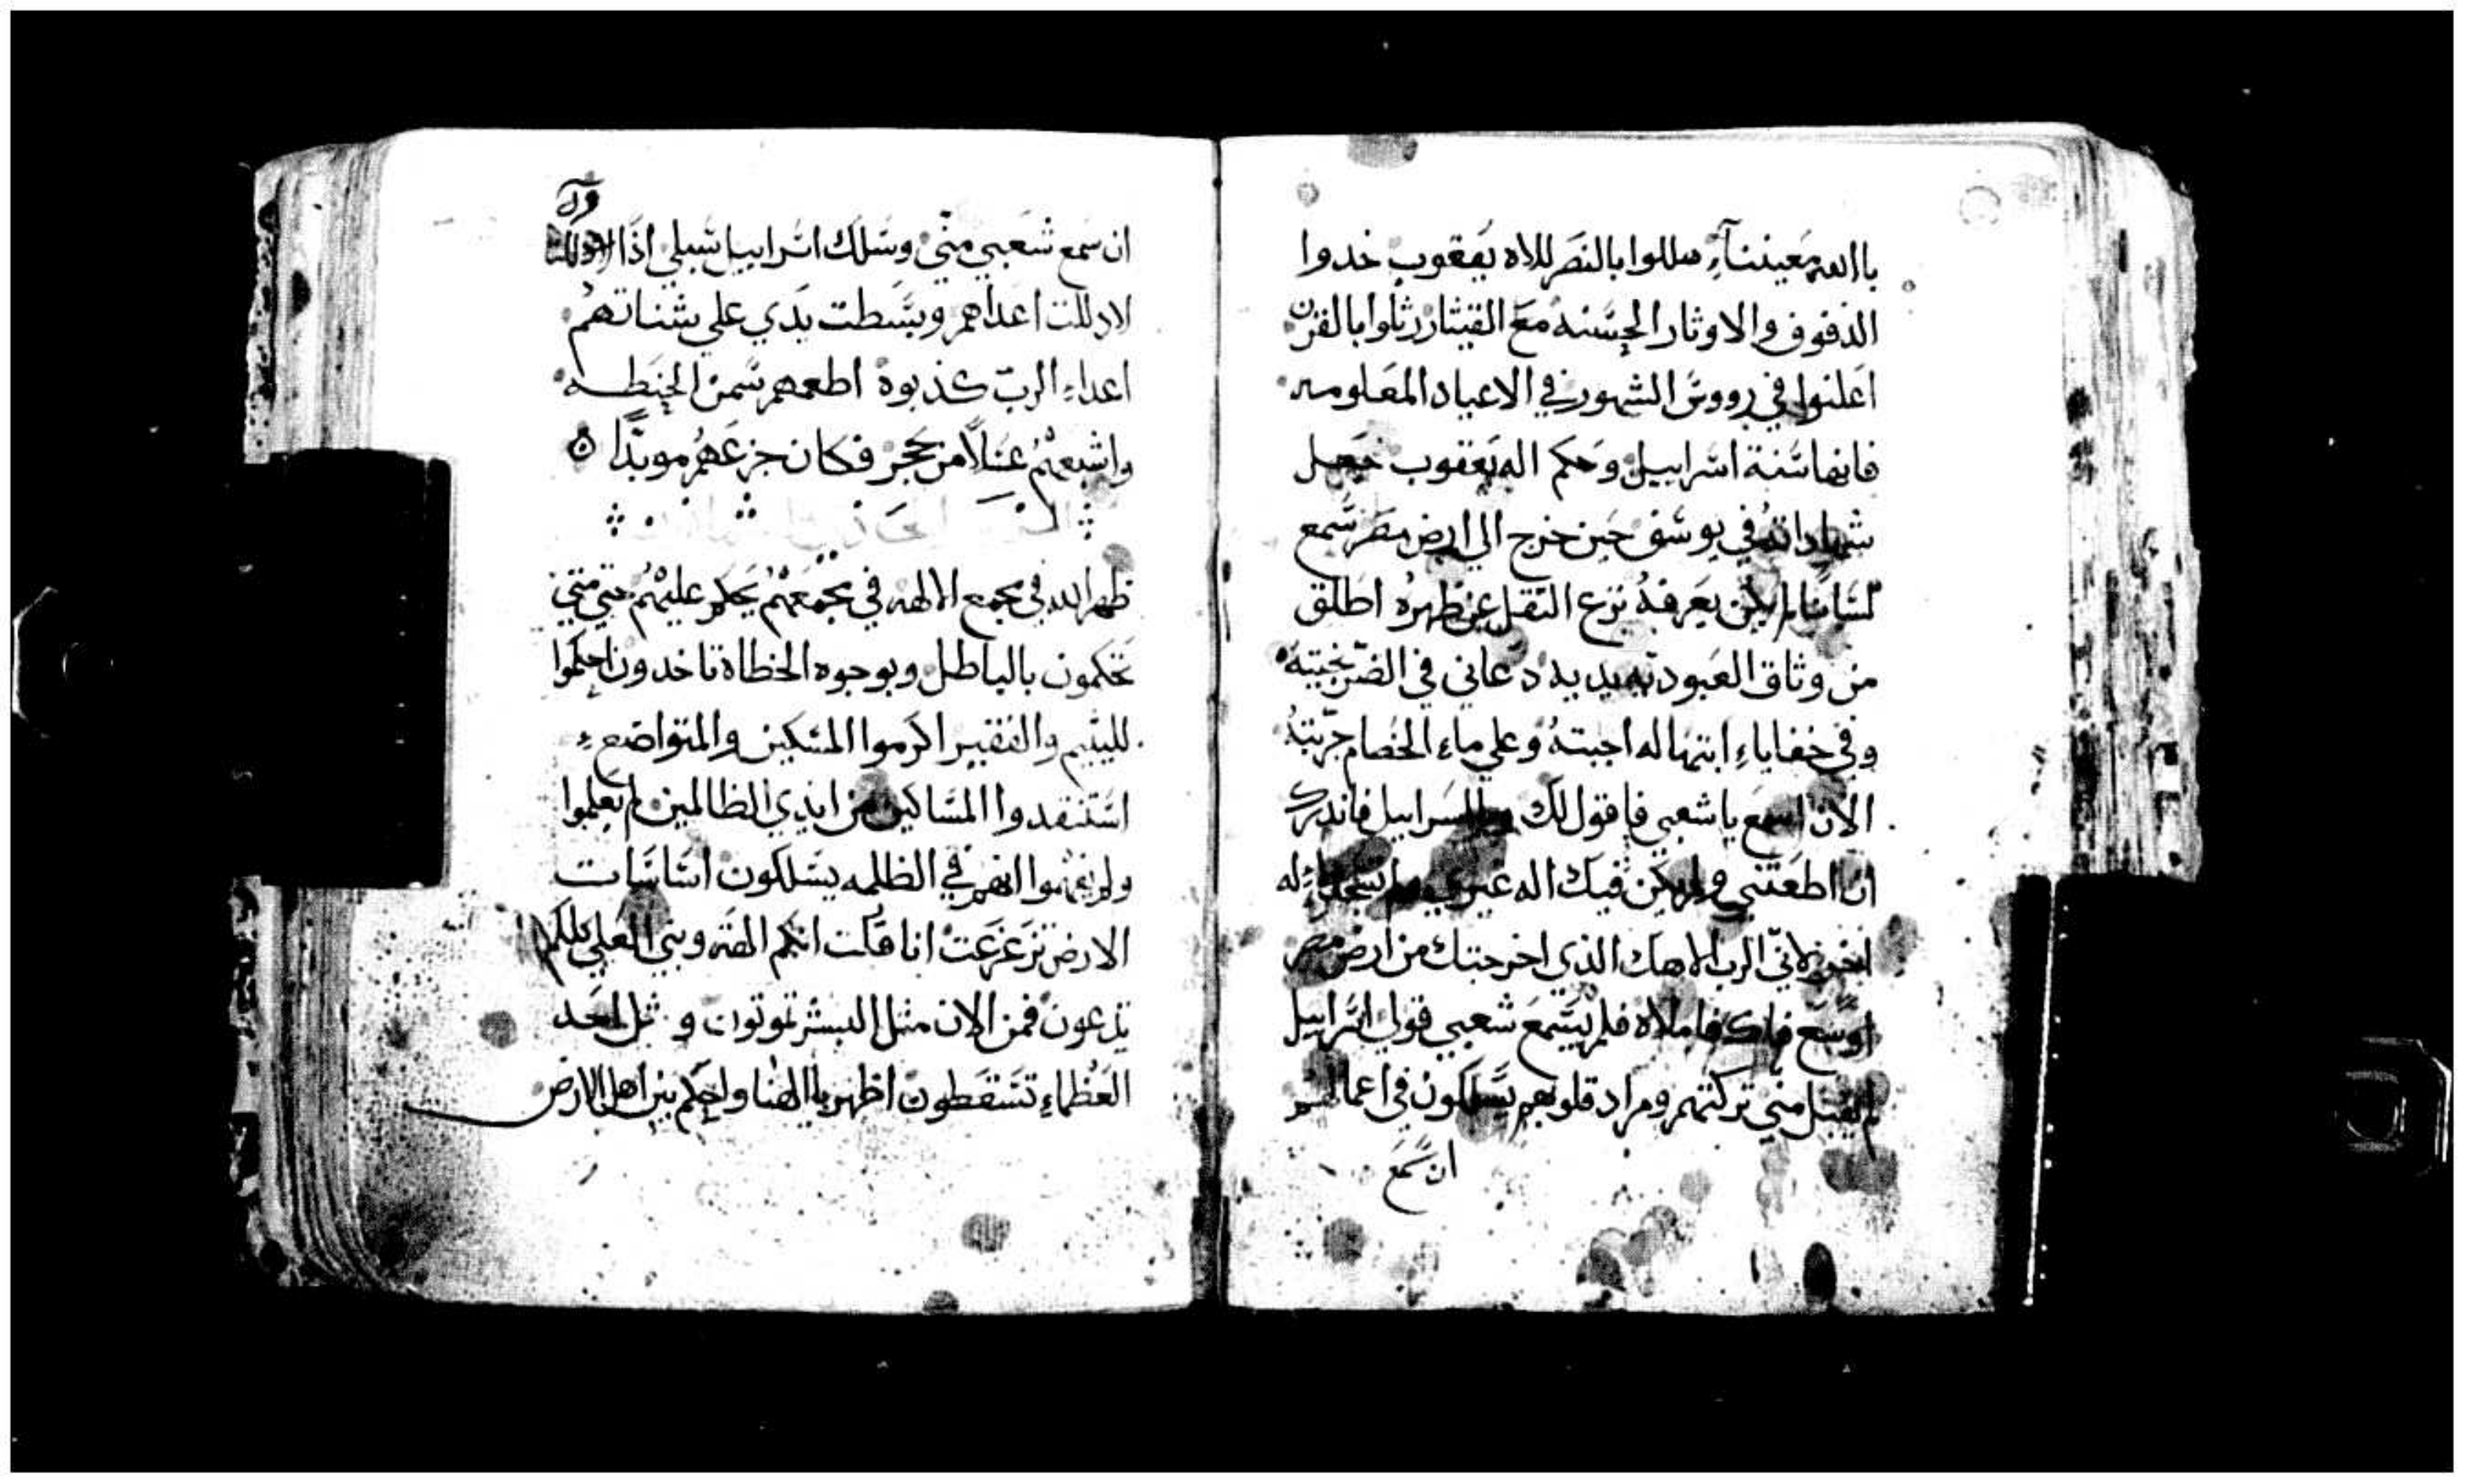 باالله معيننآء هللوا بالنصر للاه يعقوب خدوا
الدفوف والاوثار الحسنه مع القيثار رثلوا بالقرن
اعلنوا في رووس الشهور في الاعياد المعلومه
فانها سنة اسراييل وحكم اله يعقوب جعل
شهاداته في يوسف حين خرج الي ارض مصر سمع
لسانا لم يكن يعرفه نزع الثقل عن ظهره اطلق
من وثاق العبوديه يديه دعاني في الضر نجيته
وفي خفاياء ابتهاله اجبته وعلي ماء الخصام جربته
الان اسمع يا شعبي فاقول لك اسراييل فاندرك
ان اطعتني ولم يكن فيك اله غيري ولم تسجد لاله
اخر لاني الرب الاهك الذي اخرجتك من ارض مصر
اوسع فاك فاملاه فلم يسمع شعبي قولي اسراييل
لم يقبل مني تركتهم ومراد قلوبهم يسلكون في اعمالهم
ان سمع
ان سمع شعبي مني وسلك اسراييل سبلي اذا
لادللت اعداهم وبسطت يدي علي شناتهم
اعداء الرب كذبوه اطعمهم سمن الحنطه
واشبعهم عسلا من حجر فكان جزعهم موبدا
ظهر الله في مجمع الالهه في مجمعهم يحكم عليهم حتي متي
تحكمون بالباطل وبوجوه الخطاة تاخدون احكموا
لليتيم والفقير اكرموا المسكين والمتواضع
استنقدوا المساكين من ايدي الظالمين لم يعلموا
ولم يفهموا انهم في الظلمه يسلكون اساسات
الارض تزعزعت انا قلت انكم الهه وبني العلي كلكم
تدعون فمن الان مثل البشر تموتون و مثل احد
العظماء تسقطون اظهر يا الهنا واحكم بين اهل الارض